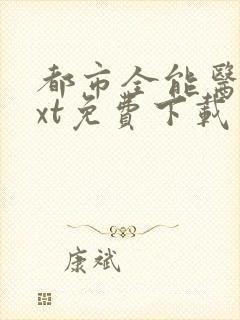 都市全能醫
xt免費下載
康斌